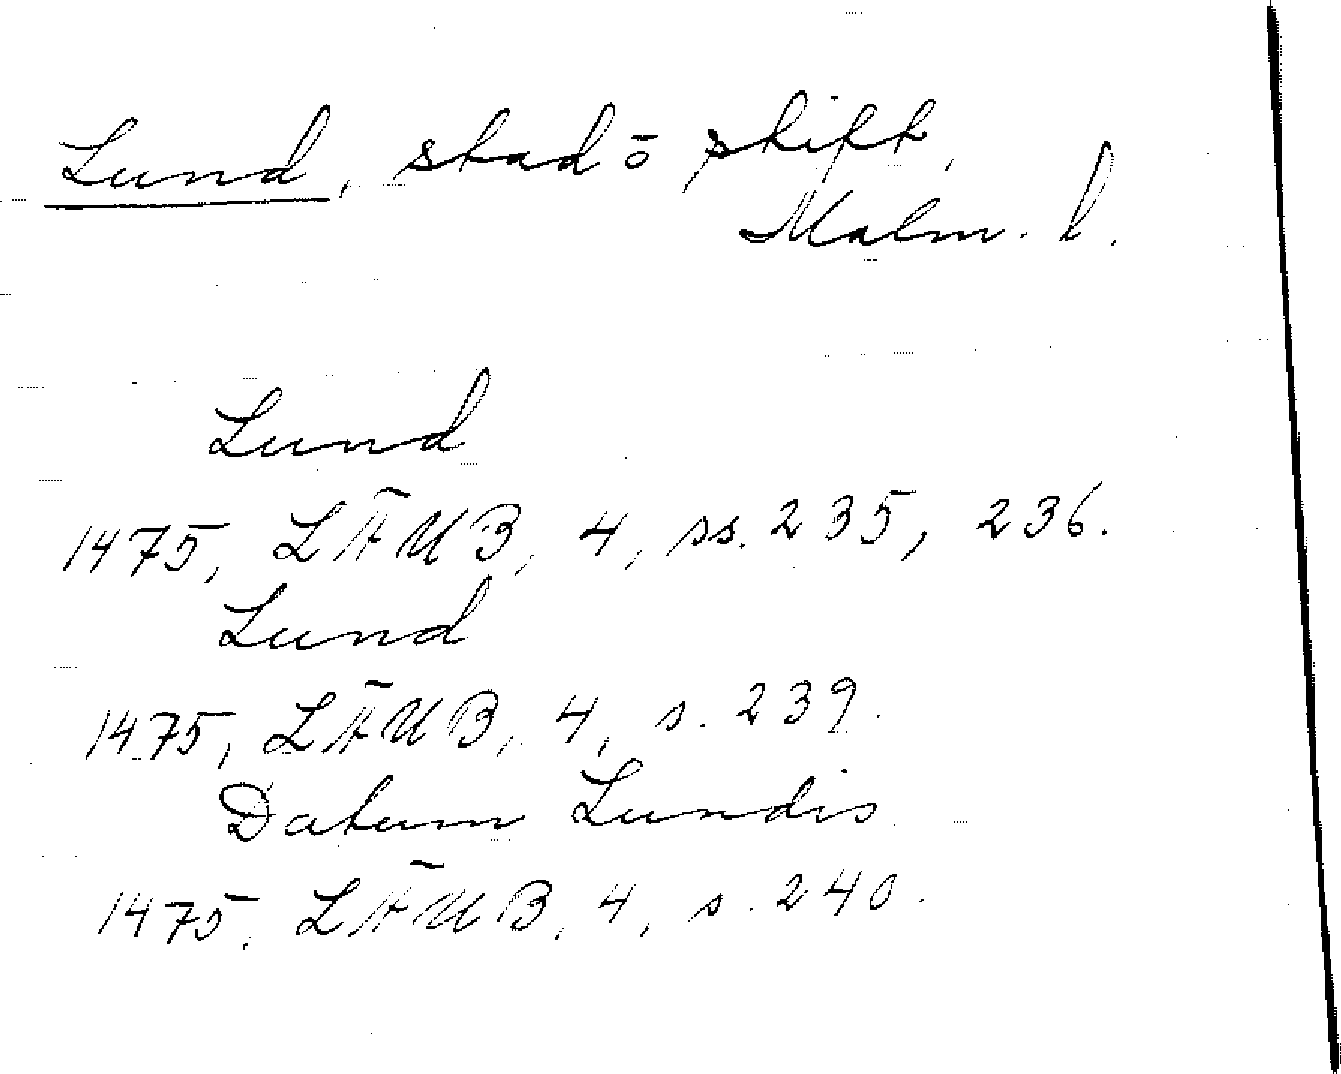 Lund, stad ō stift,
Malm. l.
Lund
1475, LÄUB, 4, ss. 235, 236.
Lund
1475, LÄUB, 4, s. 239.
Datum Lundis
1475, LÄUB, 4, s. 240.